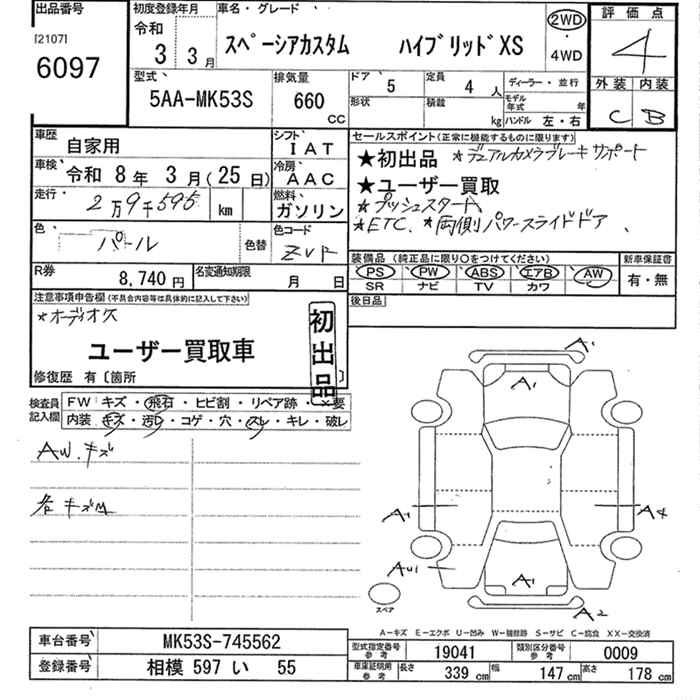 出品番号
[2107]
6097
初度登録年月
令和
3年 3月
車名・グレード
スペーシアカスタム ハイブリッド XS
2WD
・
4WD
評価点
4
外装 内装
C B
型式
5AA-MK53S
排気量
660
CC
ドア
5
定員
4人
形状
積載
kg
ディーラー・並行
モデル年式 年
ハンドル 左・右
車歴
自家用
シフト
IAT
車検
令和 8年 3月(25日)
冷房
AAC
走行
2万9千595 km
燃料
ガソリン
色
パール
色替
色コード
ZVR
R券
8,740円
名変通知期限
月 日
セールスポイント(正常に機能するものに限ります)
★初出品 ★デュアルカメラブレーキサポート
★ユーザー買取
★プッシュスタート
★ETC. ★両側パワースライドドア
装備品 (純正品に限り○をつけてください)
PS PW ABS エアB AW
SR ナビ TV カワ
新車保証書
有・無
後日品
注意事項申告欄(不具合内容等は具体的に記入して下さい)
★オーディオレス
ユーザー買取車
初出品
修復歴 有〔箇所 〕
検査員記入欄
FW キズ・飛石・ヒビ割・リペア跡・×要
内装 キズ・汚レ・コゲ・穴・スレ・キレ・破レ
AW.キズ
各キズ
A1
A1
A1
A4
AU1
A1
A2
スペア
A-キズ E-エクボ U-凹み W-補修跡 S-サビ C-腐食 XX-交換済
車台番号
MK53S-745562
登録番号
相模 597 い 55
型式指定番号
参考
19041
類別区分番号
参考
0009
車庫証明用
参考
長さ 339 cm 幅 147 cm 高さ 178 cm